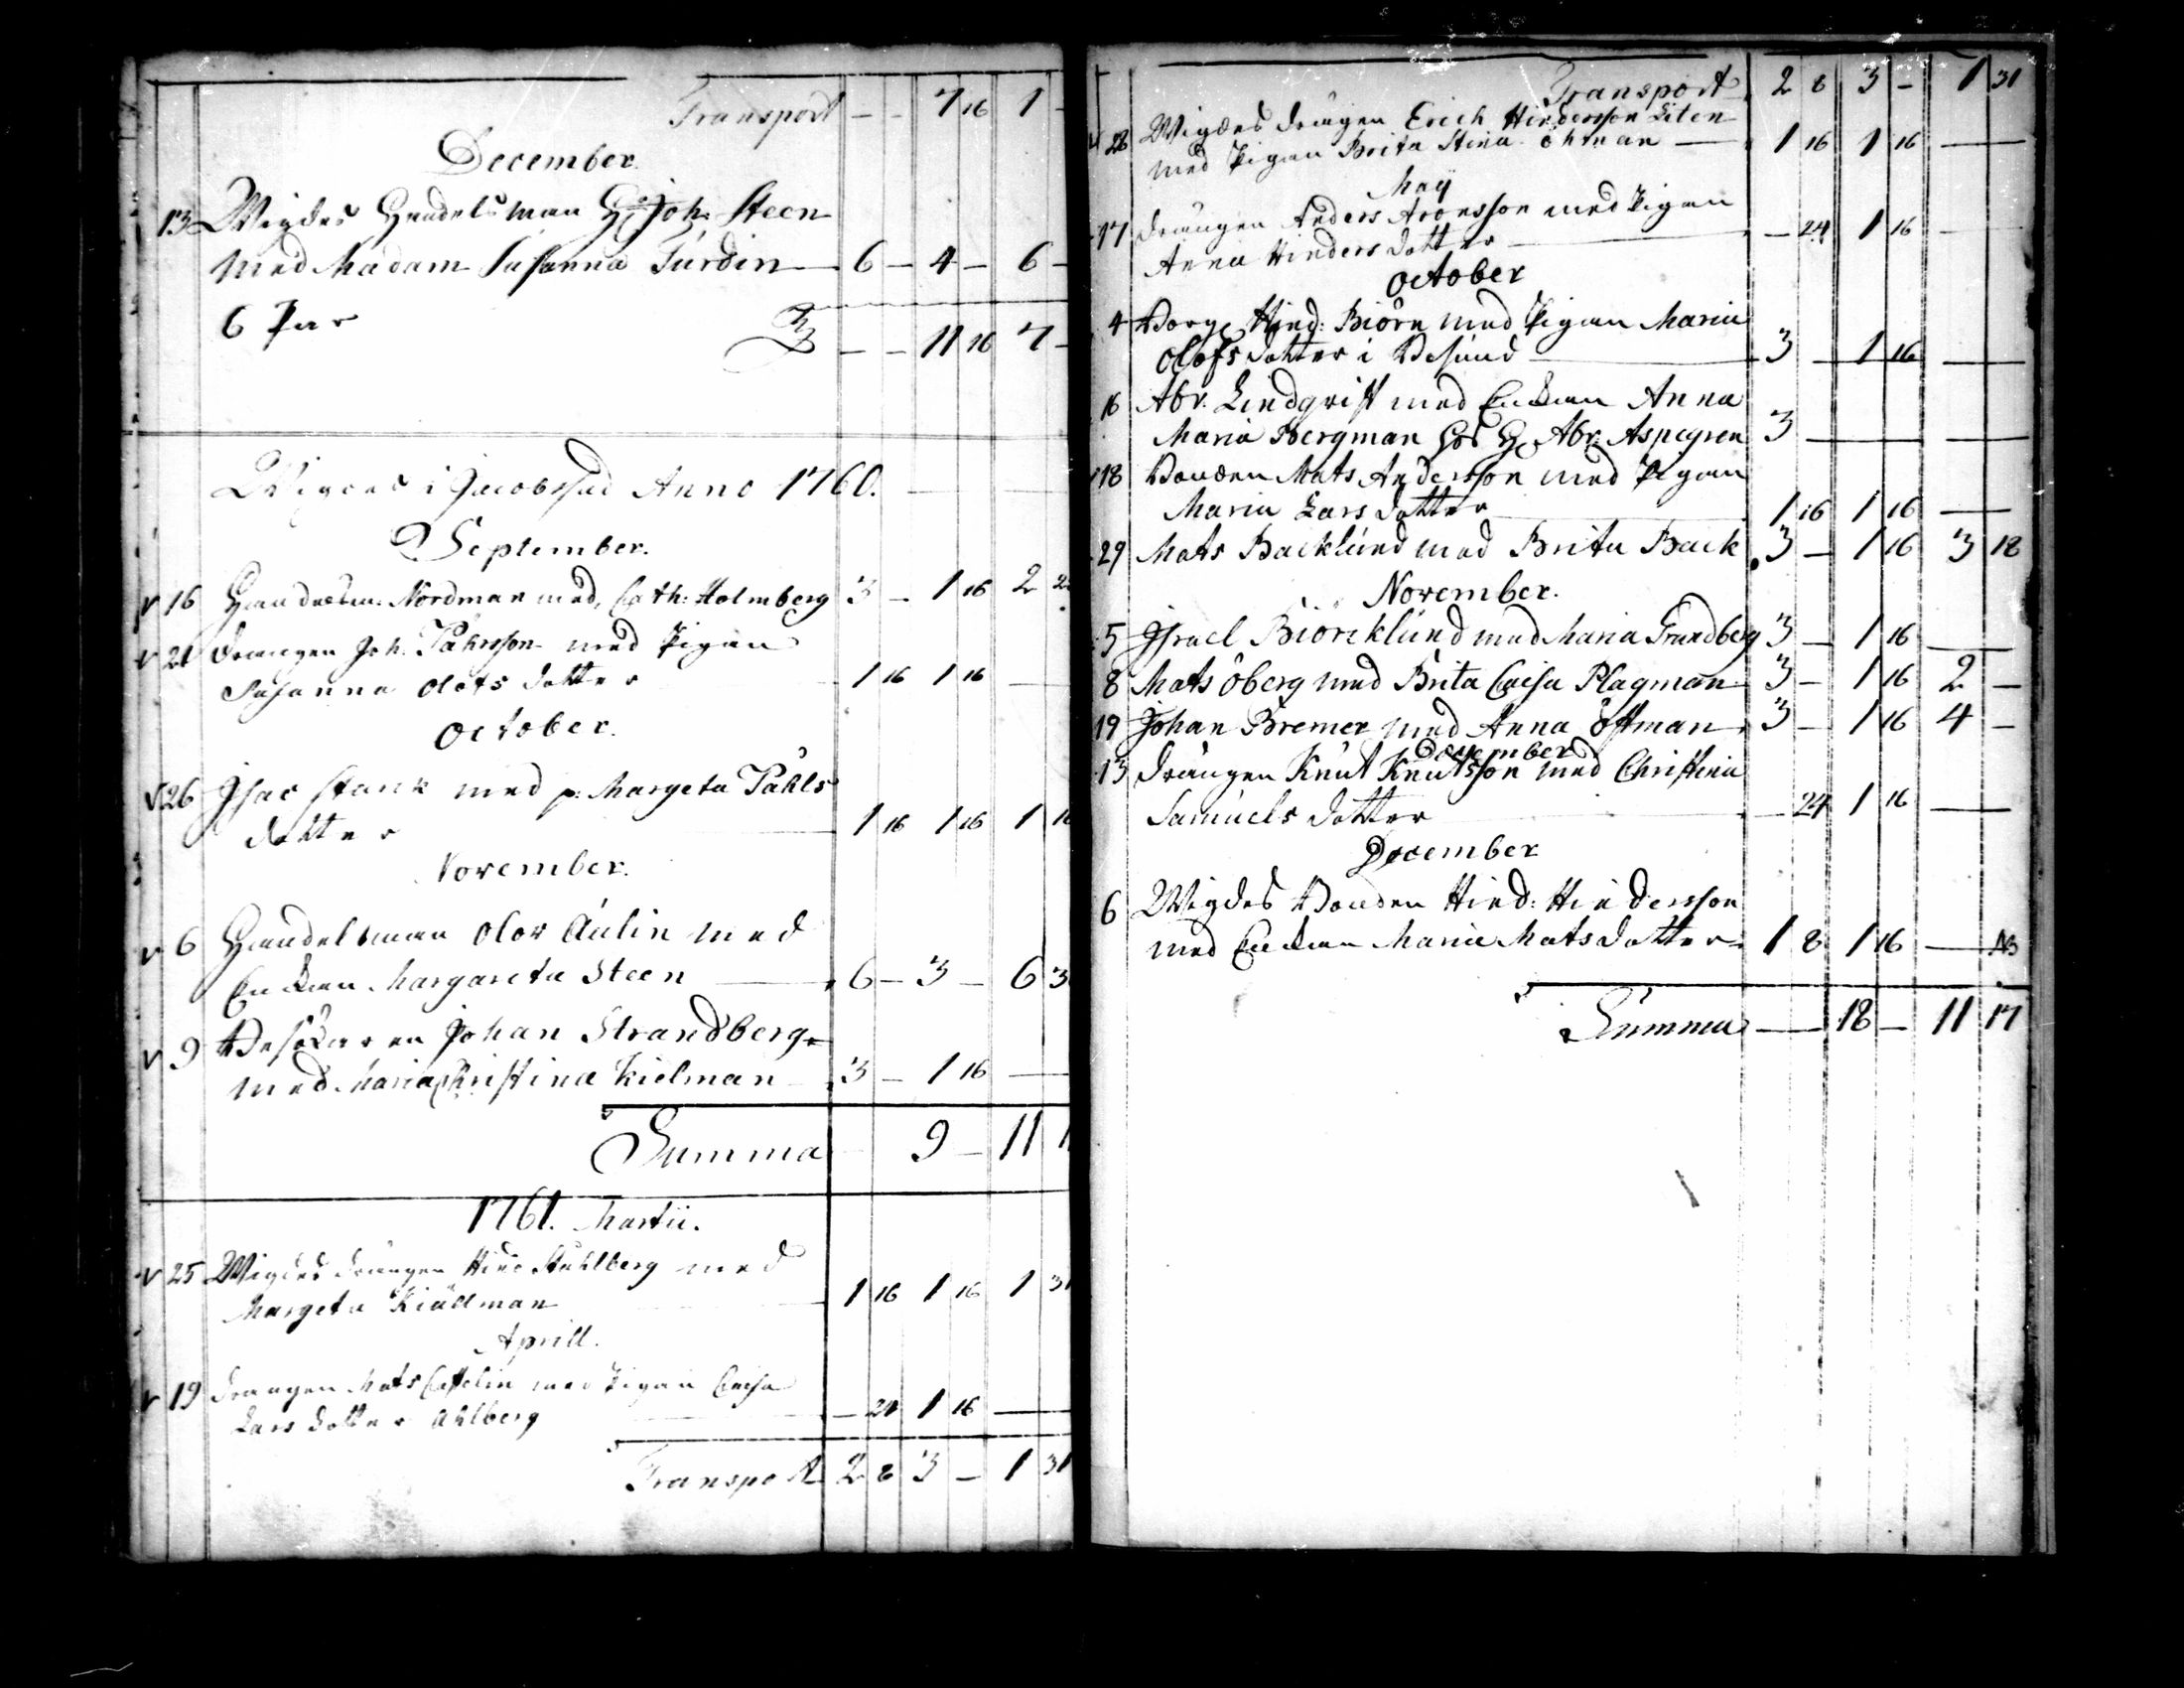 Transport — — 7 16 1 —
December.
13 Wigdes Handelsman H. Joh: Steen
med Madam Susanna Turdin — 6 — 4 — 6 —
6 Par — — 11 16 7 —
Wigde i Jacobstad Anno 1760.
September.
16 Handelsm: Nordman med Cath: Holmberg 3 — 1 16 2
21 Drängen Joh. Påhrsson med Pigan
Susanna Olofs dotter 1 16 1 16 —
October.
26 Isac Stank med p: Margeta Påhls
dotter 1 16 1 16 1
November.
6 Handelsman Olov Aulin med
Enckan Margareta Steen — 6 — 3 — 6
9 Besökaren Johan Strandberg
med Maria Christina Kielman 3 — 1 16 —
Summa 9 — 11
1761. Martii.
25 Wigdes Drängen Hind Stahlberg med
Margeta Kiällman 1 16 1 16 1 31
Aprill.
19 Drängen Mats Castelin med Pigan Caisa
Lars dotter Ahlberg — 24 1 16 —
Transport 2 8 3 — 1 31
Transport 2 8 3 — 1 31
26 Wigdes Drängen Erich Hindersson Liten
med Pigan Brita Stina Öhman — 1 16 1 16 —
Maij
17 Drängen Anders Aronsson med Pigan
Anna Hinders dotter — — 24 1 16 —
October
4 Borg: Hind: Biörn med Pigan Maria
Olofs dotter i Vesund — 3 — 1 16 —
16 Abr. Lindqvist med Enckan Anna
Maria Bergman hos H. Abr. Aspegren 3 — — —
18 Bonden Mats Andersson med Pigan
Maria Lars dotter 1 16 1 16 —
29 Mats Backlund med Brita Back 3 — 1 16 3 18
November.
5 Israel Biörcklund med Maria Grandberg 3 — 1 16 —
8 Mats Öberg med Brita Caisa Plagman 3 — 1 16 2 —
19 Johan Bremer med Anna Öfman 3 — 1 16 4 —
December
13 Drängen Knut Knutsson med Christina
Samuels dotter — 24 1 16 —
December
6 Wigdes Bonden Hind: Hindersson
med Enckan Maria Mats dotter 1 8 1 16 —
Summa — 18 — 11 17